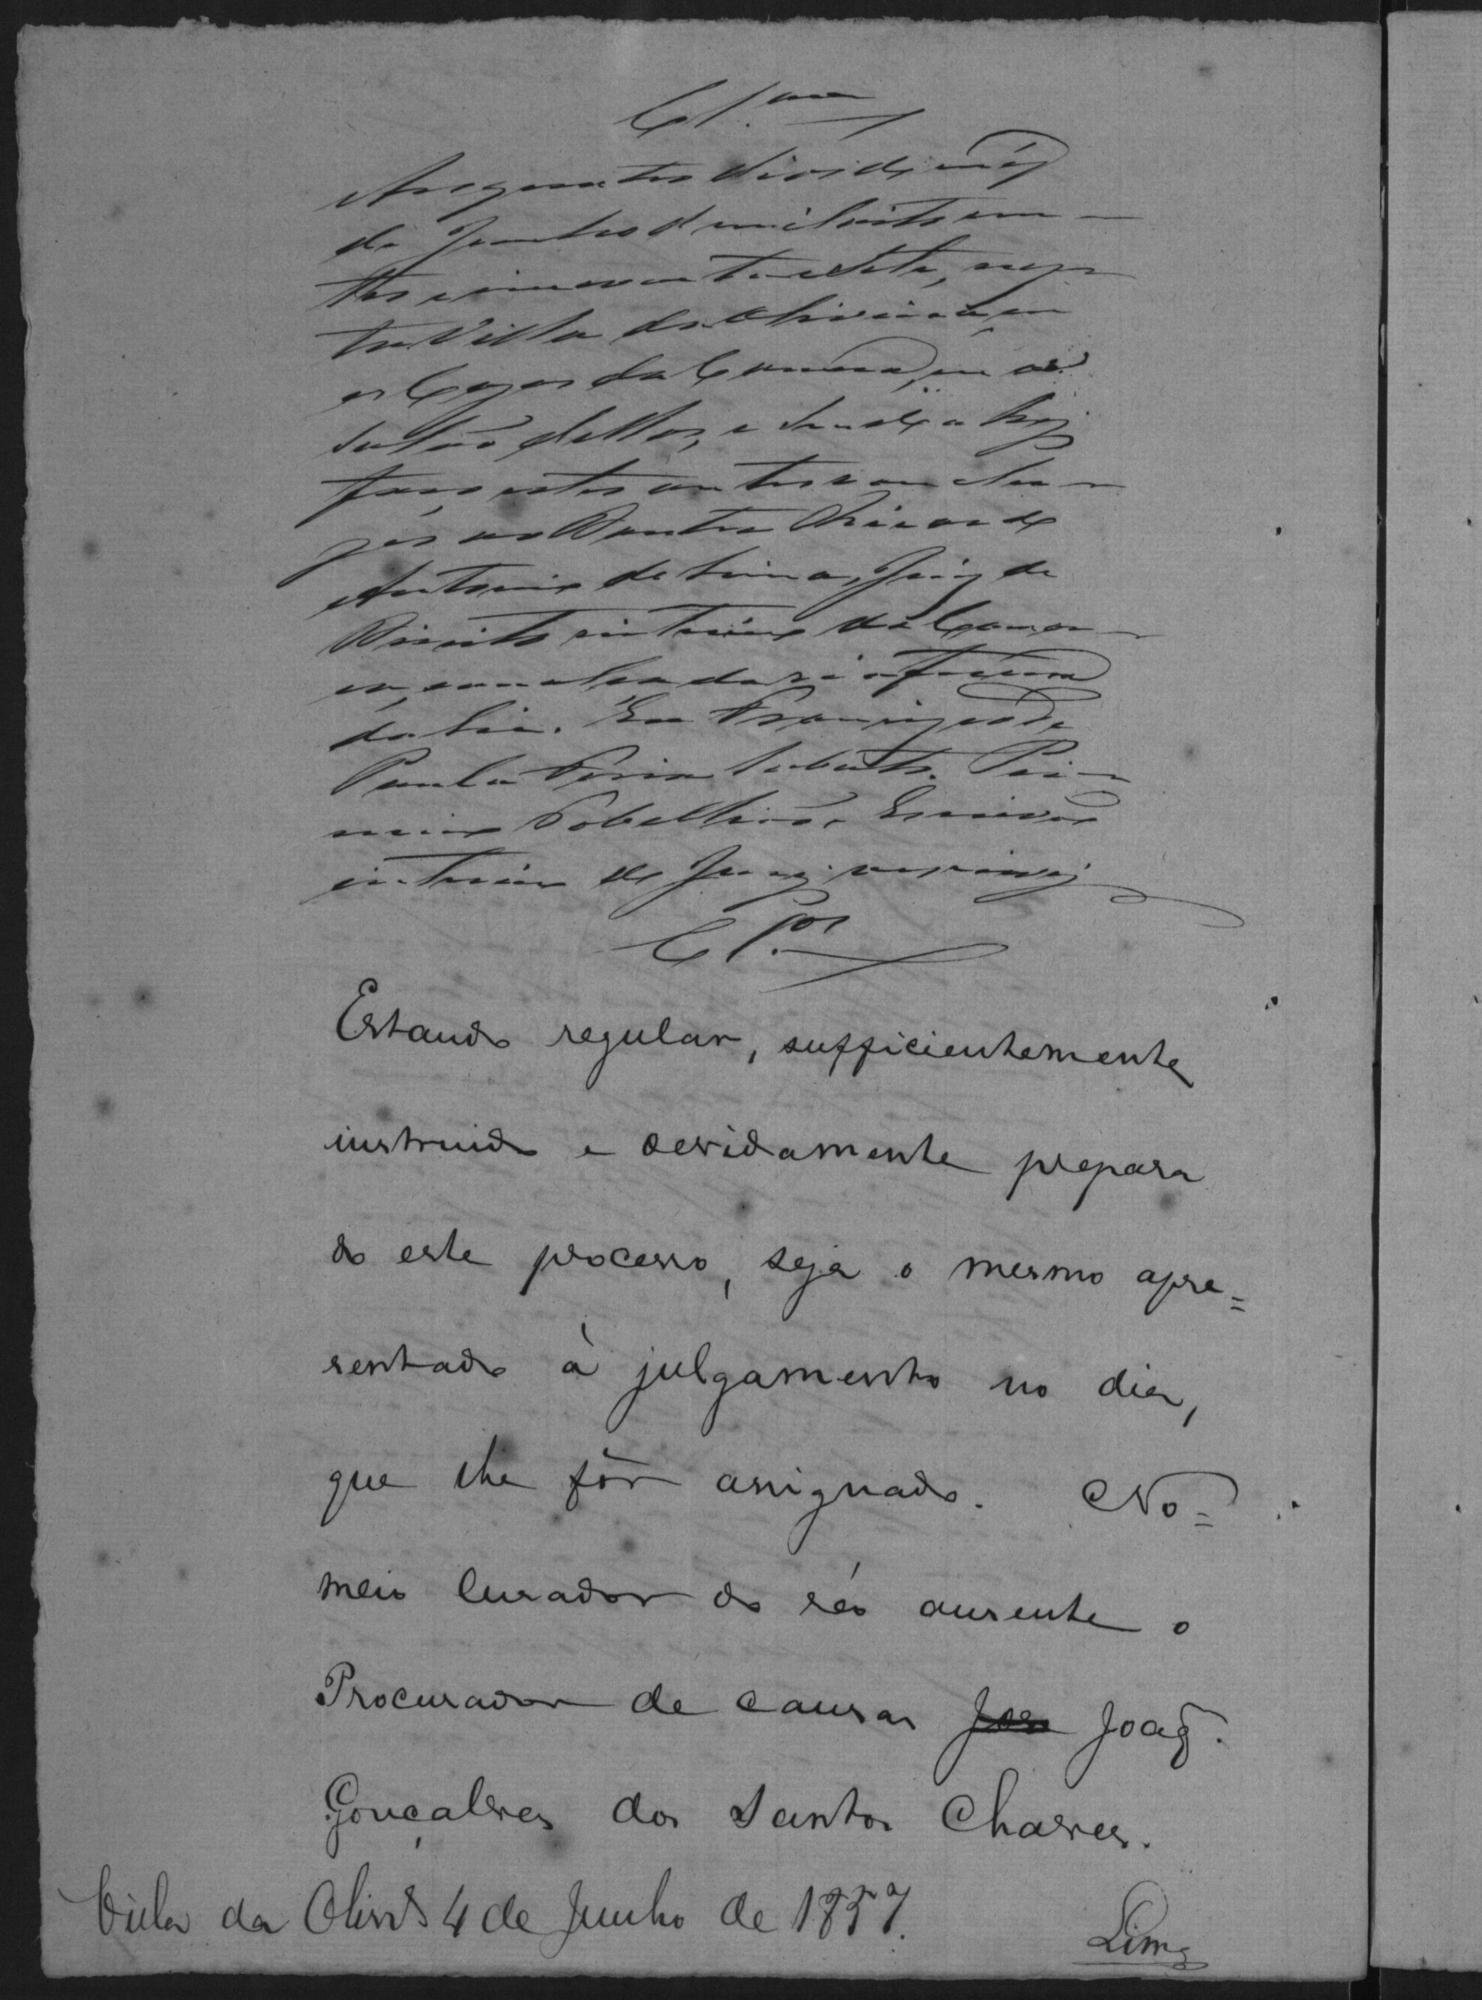 Cl.am
Aos quatro dias do mez
de Junho de mil oito cen
tos e cincoenta e sete, nes
ta Villa da Oliveira, em
os Paços da Camara, em o
Salão dellas, e sendo ahi
faço estes autos con clu
sos ao Doutor
Antonio de Lima, Juiz de
Direito interino da Comar
ca,
da Lei. Eu Francisco de
Paula Lobato. Pri
meiro Tabellião e Escrivão
interino do Jury escrevi
Cl.os
Estando regular, sufficientemente
instruido e devidamente prepara
do este processo, seja o mesmo apre=
sentado à julgamento no dia,
que lhe fôr assignado. No=
meio Curador do réo ausente o
Procurador de causas Joaq.
Gonçalves dos Santos Chaves.
Villa da Olivrª 4 de Junho de 1857.
Lima